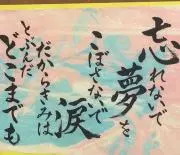 忘れないで
夢を
こぼさないで
涙
だからきみは
とぶんだ
どこまでも